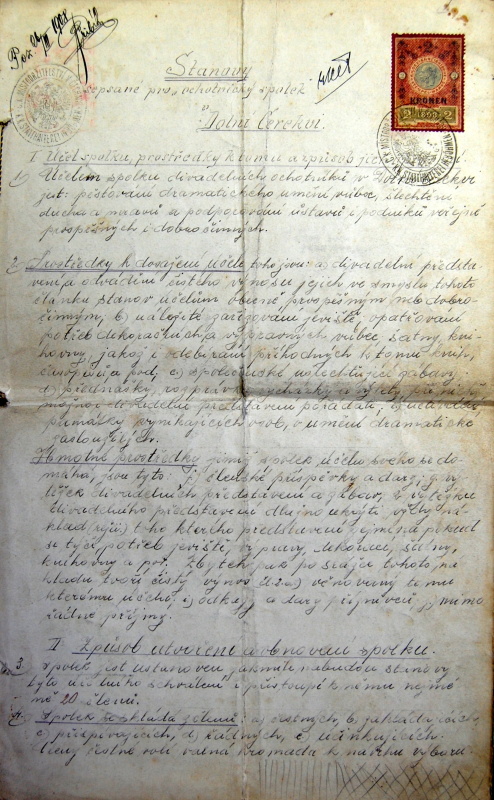 1908
Stanovy
sepsané pro „ochotnický spolek
Dolní Cerekvi.
KRONEN
2 1898 2
I. Účel spolku, prostředky k tomu a způsob
1) Účelem spolku divadelních ochotníků v Dolní Cerekvi
jest: pěstování dramatického umění vůbec, šlechtění
ducha a mravů a podporování ústavů i podniků veřejně
prospěšných i dobročinných.
2. Prostředky k docílení účele toho jsou: a) divadelní představení
a odvádění čistého výnosu jejich ve smyslu tohoto
článku stanov účelům obecně prospěšným nebo dobročinným,
b) zařizování jeviště, opatřování
potřeb dekoračních a výpravných vůbec, šatny, knihovny,
jakož i odebírání příhodných k tomu knih,
časopisů a pod., c) společenské ušlechtilé zábavy,
d) přednášky, rozpravy, a výlety, při nichž
možno i divadelní představení pořádati,
památky vynikajících osob, o umění dramatické
zasloužilých.
Hmotné prostředky jimiž spolek účelu svého se domáhá,
jsou tyto: f) členské příspěvky a dary, g) výtěžek
divadelních představení a zábav, Z výtěžku
divadelního představení dlužno uhraditi výlohy náklad
(režii) toho kterého představení zejména pokud
se týče potřeb jeviště, výpravy, dekorací, šatny,
knihovny a pod. Zbytek pak po srážce tohoto nákladu
tvoří čistý výnos věnovaný tomu
kterému účelu. i) odkazy a dary j) mimořádné
příjmy.
II. Způsob utvoření a obnovení spolku.
3. Spolek jest ustanoven jakmile nabudou stanovy
tyto úředního schválení i přistoupí k němu nejméně
20 členů.
4. Spolek se skládá z členů: a) čestných, b) zakládajících,
c) přispívajících, d) řádných, e) účinkujících.
Členy čestné volí valná hromada k návrhu výboru.